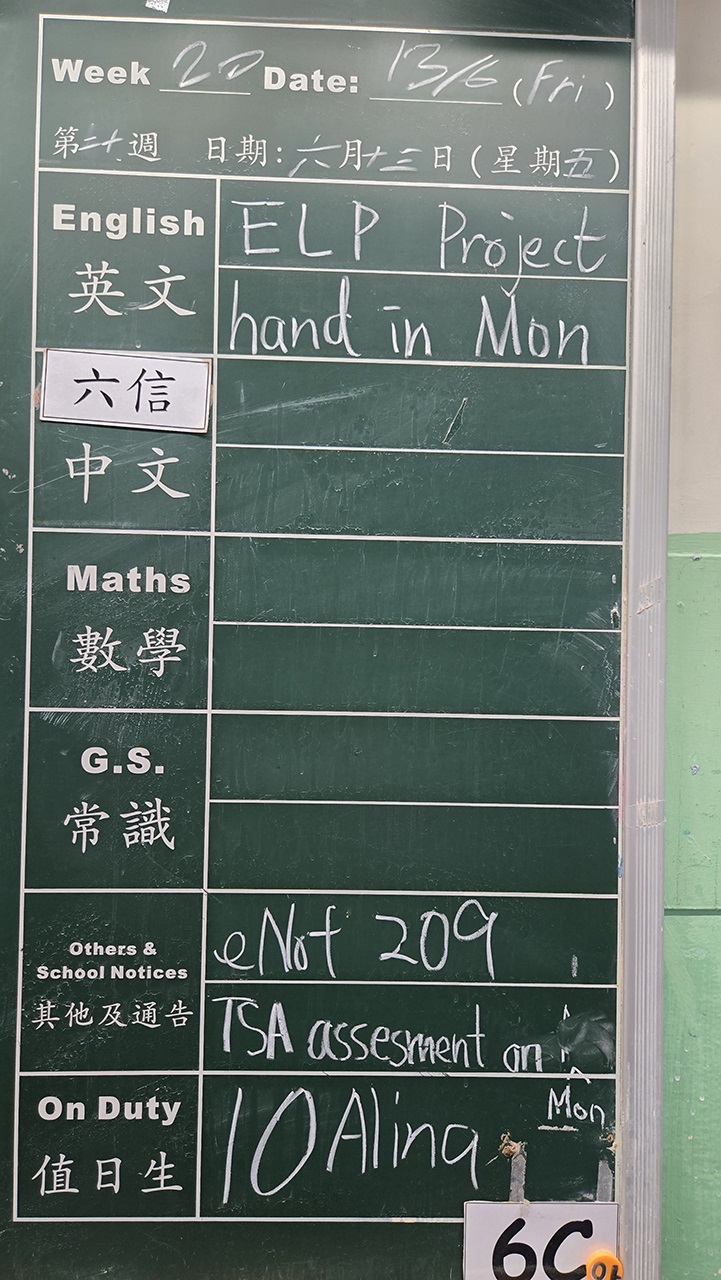 Week 20 Date: 13/6 (Fri)
第二十週 日期:六月十三日(星期五)
English
英文
ELP Project
hand in Mon
六信
中文
Maths
數學
G.S.
常識
Others &
School Notices
其他及通告
eNot 209
TSA assesment on
Mon
On Duty
值日生
10 Alina
6C